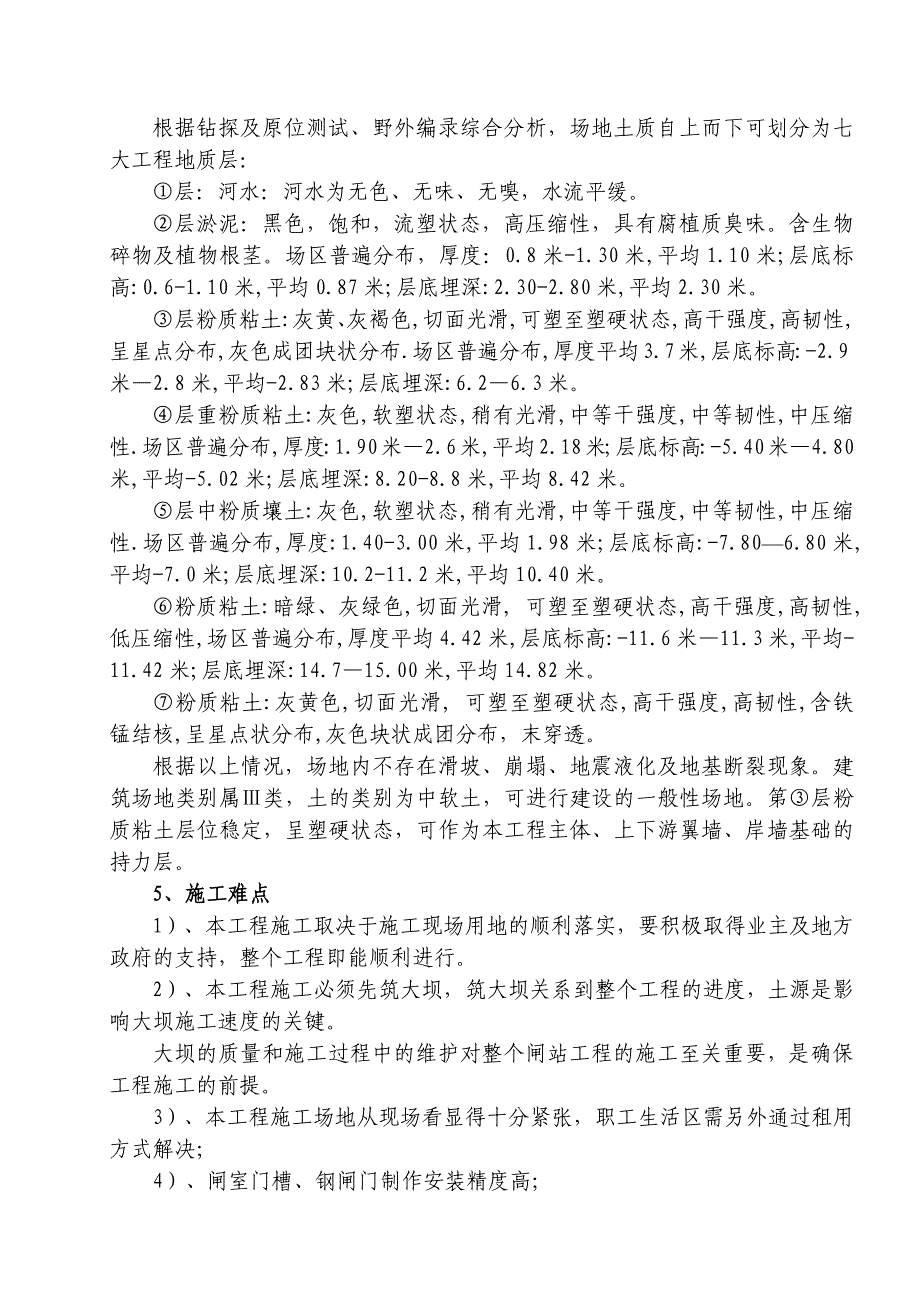 根据钻探及原位测试、野外编录综合分析，场地土质自上而下可划分为七
大工程地质层：
①层：河水：河水为无色、无味、无嗅，水流平缓。
②层淤泥：黑色，饱和，流塑状态，高压缩性，具有腐植质臭味。含生物
碎物及植物根茎。场区普遍分布，厚度：0.8米-1.30米,平均1.10米;层底标
高:0.6-1.10米,平均0.87米;层底埋深:2.30-2.80米,平均2.30米。
③层粉质粘土:灰黄、灰褐色,切面光滑,可塑至塑硬状态,高干强度,高韧性,
呈星点分布,灰色成团块状分布.场区普遍分布,厚度平均3.7米,层底标高:-2.9
米—2.8米,平均-2.83米;层底埋深:6.2—6.3米。
④层重粉质粘土:灰色,软塑状态,稍有光滑,中等干强度,中等韧性,中压缩
性.场区普遍分布,厚度:1.90米—2.6米,平均2.18米;层底标高:-5.40米—4.80
米,平均-5.02米;层底埋深:8.20-8.8米,平均8.42米。
⑤层中粉质壤土:灰色,软塑状态,稍有光滑,中等干强度,中等韧性,中压缩
性.场区普遍分布,厚度:1.40-3.00米,平均1.98米;层底标高:-7.80—6.80米,
平均-7.0米;层底埋深:10.2-11.2米,平均10.40米。
⑥粉质粘土:暗绿、灰绿色,切面光滑, 可塑至塑硬状态,高干强度,高韧性,
低压缩性,场区普遍分布,厚度平均4.42米,层底标高:-11.6米—11.3米,平均-
11.42米;层底埋深:14.7—15.00米,平均14.82米。
⑦粉质粘土:灰黄色,切面光滑, 可塑至塑硬状态,高干强度,高韧性,含铁
锰结核,呈星点状分布,灰色块状成团分布，末穿透。
根据以上情况，场地内不存在滑坡、崩塌、地震液化及地基断裂现象。建
筑场地类别属Ⅲ类，土的类别为中软土，可进行建设的一般性场地。第③层粉
质粘土层位稳定，呈塑硬状态，可作为本工程主体、上下游翼墙、岸墙基础的
持力层。
5、施工难点
1）、本工程施工取决于施工现场用地的顺利落实，要积极取得业主及地方
政府的支持，整个工程即能顺利进行。
2）、本工程施工必须先筑大坝，筑大坝关系到整个工程的进度，土源是影
响大坝施工速度的关键。
大坝的质量和施工过程中的维护对整个闸站工程的施工至关重要，是确保
工程施工的前提。
3）、本工程施工场地从现场看显得十分紧张，职工生活区需另外通过租用
方式解决;
4）、闸室门槽、钢闸门制作安装精度高;